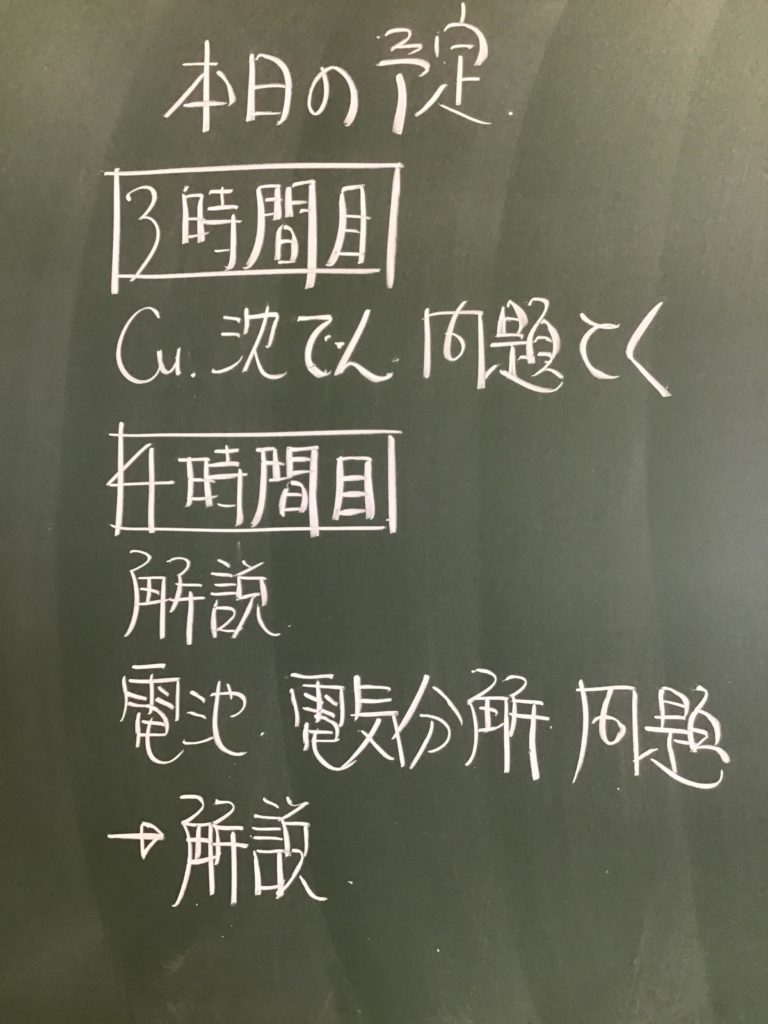 本日の予定.
3時間目
Cu. 沈でん 問題とく
4時間目
解説
電池. 電気分解 問題
→解説.